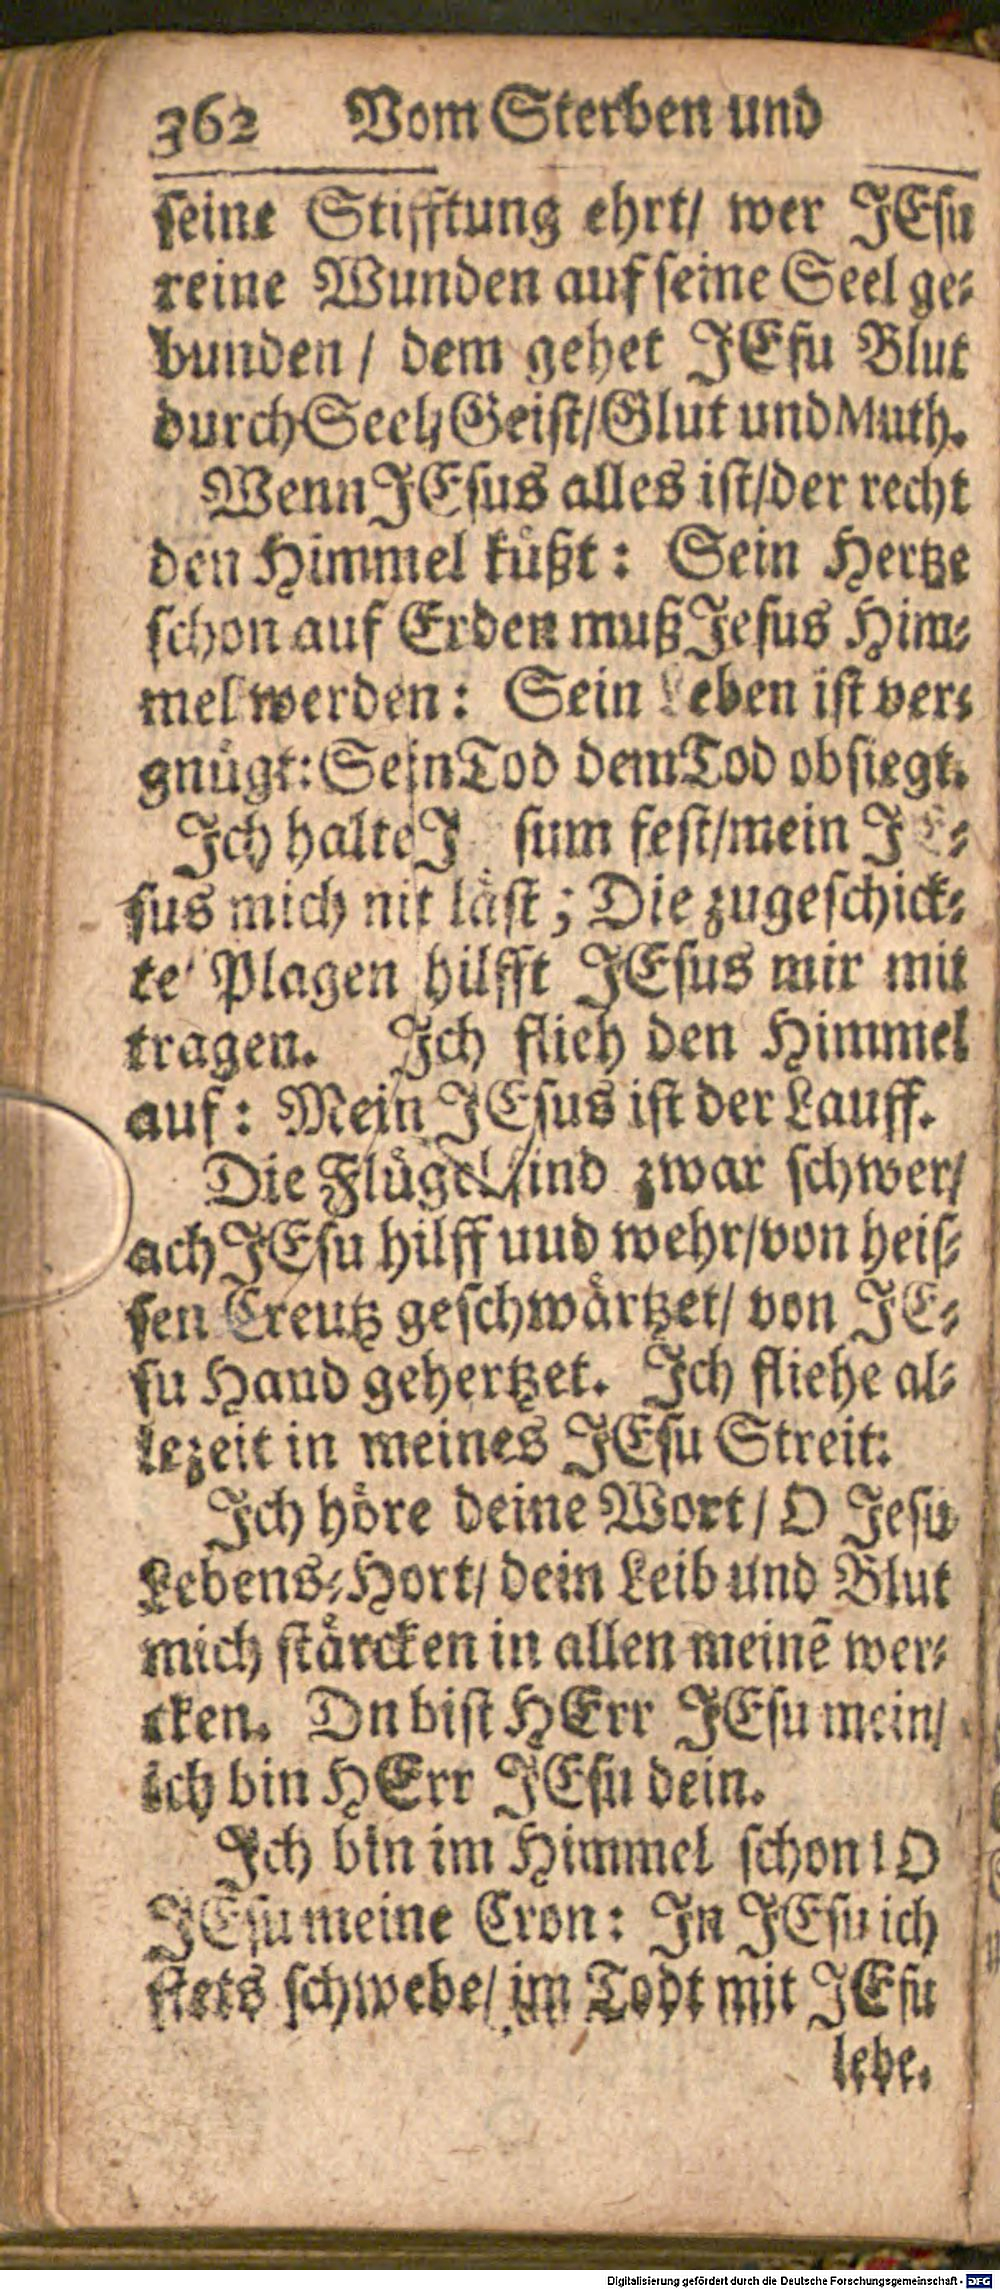 362 Vom Sterben und
seine Stifftung ehrt/ wer JEsu
reine Wunden auf seine Seel ge-
bunden / dem gehet JEsu Blut
durch Seel/ Geist/ Glut und Muth.
Wenn JEsus alles ist/ der recht
den Himmel küßt: Sein Hertze
schon auf Erden muß Jesus Him-
mel werden: Sein Leben ist ver-
gnügt: Sein Tod dem Tod obsiegt.
Ich halte J sum fest/ mein JE-
sus mich nit läst; Die zugeschick-
te Plagen hilfft JEsus mir mit
tragen. Ich flieh den Himmel
auf: Mein JEsus ist der Lauff.
Die Flügel sind zwar schwer/
ach JEsu hilff uud wehr/ von heis-
sen Creutz geschwärtzet/ von JE-
su Hand gehertzet. Ich fliehe al-
lezeit in meines JEsu Streit:
Ich höre deine Wort/ O Jesu
Lebens-Hort/ dein Leib und Blut
mich stärcken in allen meinē wer-
cken. Du bist HErr JEsu mein/
ich bin HErr JEsu dein.
Ich bin im Himmel schon! O
JEsu meine Cron: In JEsu ich
stets schwebe/ im Todt mit JEsu
lebe.
Digitalisierung gefördert durch die Deutsche Forschungsgemeinschaft - DFG